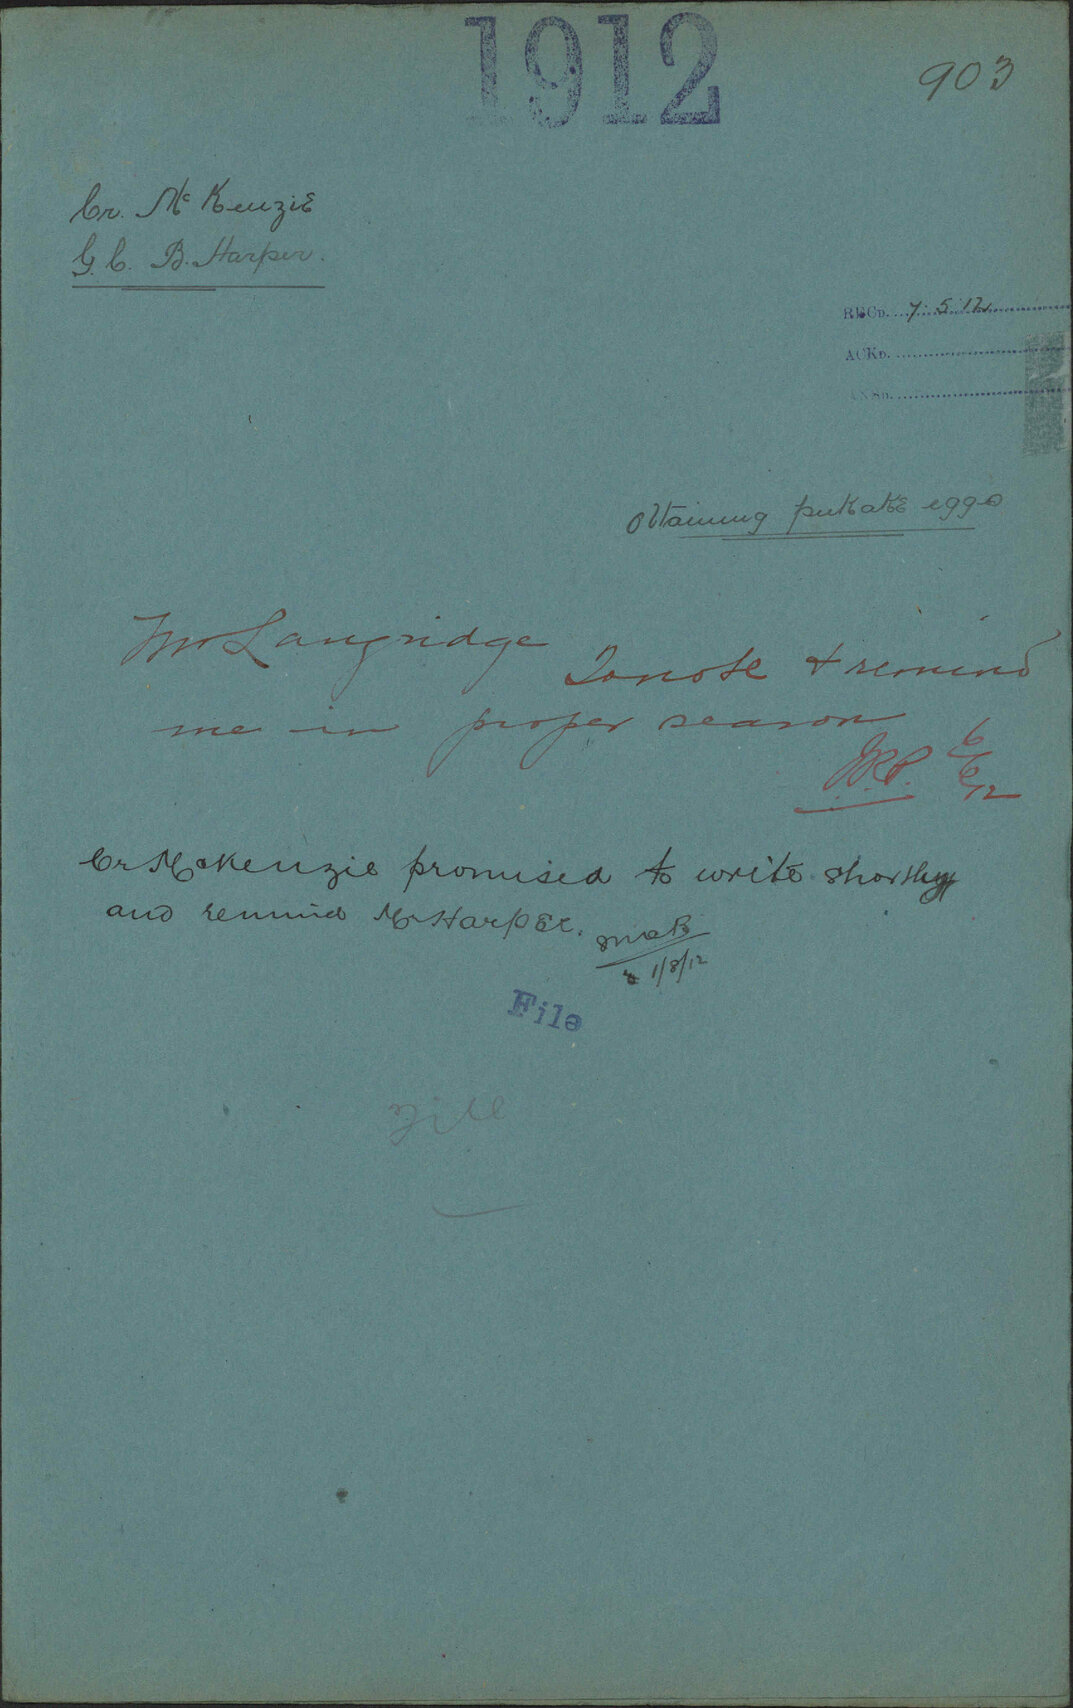 1912
903
Cr. McKenzie
G. C. B. Harper.
RECD. 7.5.12
ACKD.
ANSD.
Obtaining pukake eggs
Mr Langridge
To note & remind
me in proper season
JRP. 6/6/12
Cr McKenzie promised to write shortly
and remind Mr Harper.
1/8/12
File
File